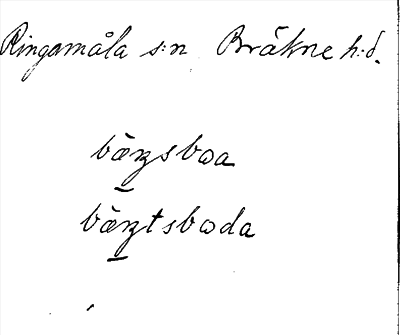 Ringamåla s:n Bräkne h:d.
bàꞃsbɷa
bàꞃtsbɷda